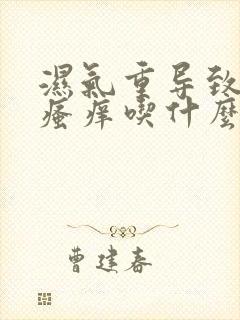 濕氣重导致
瘙痒喫什麼
曹建春